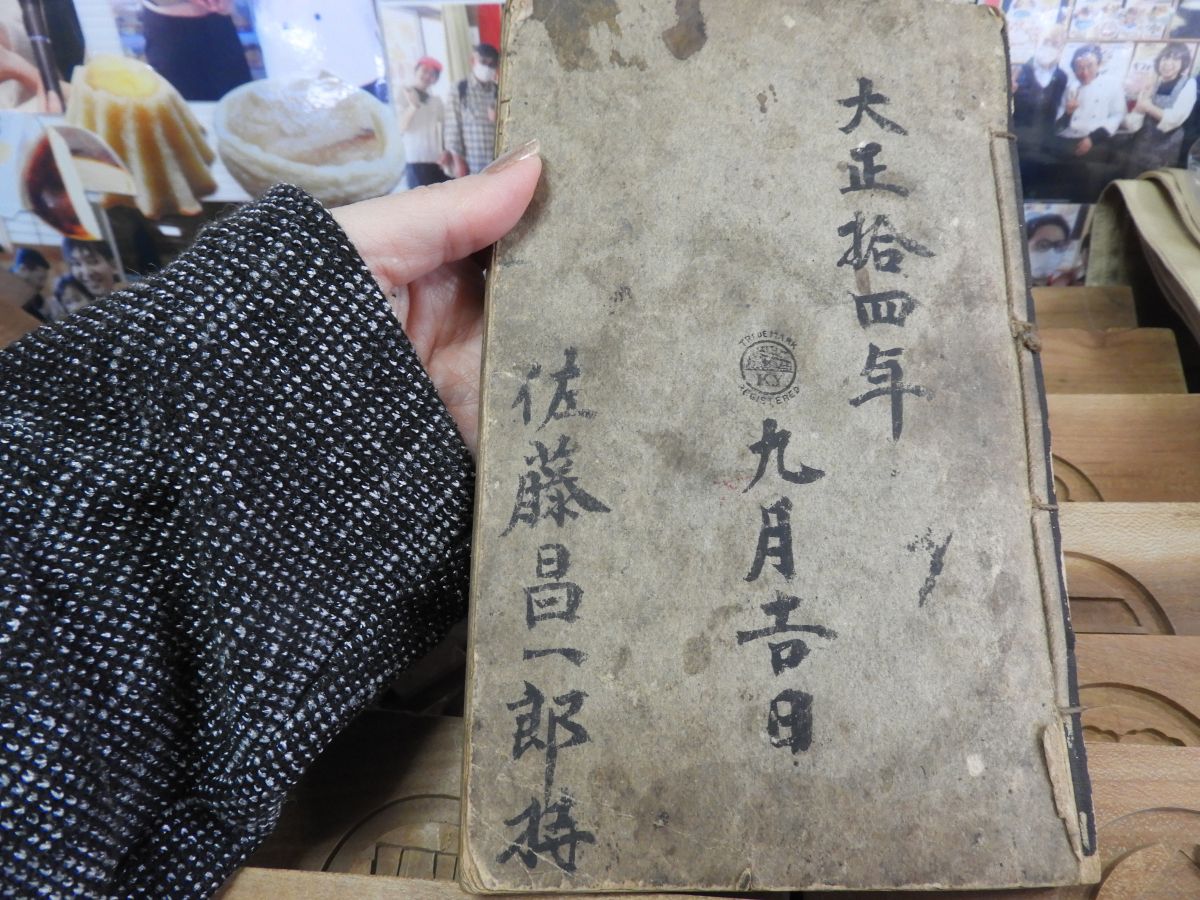 大正拾四年
TRADE MARK
KY
REGISTERED
九月吉日
佐藤昌一郎